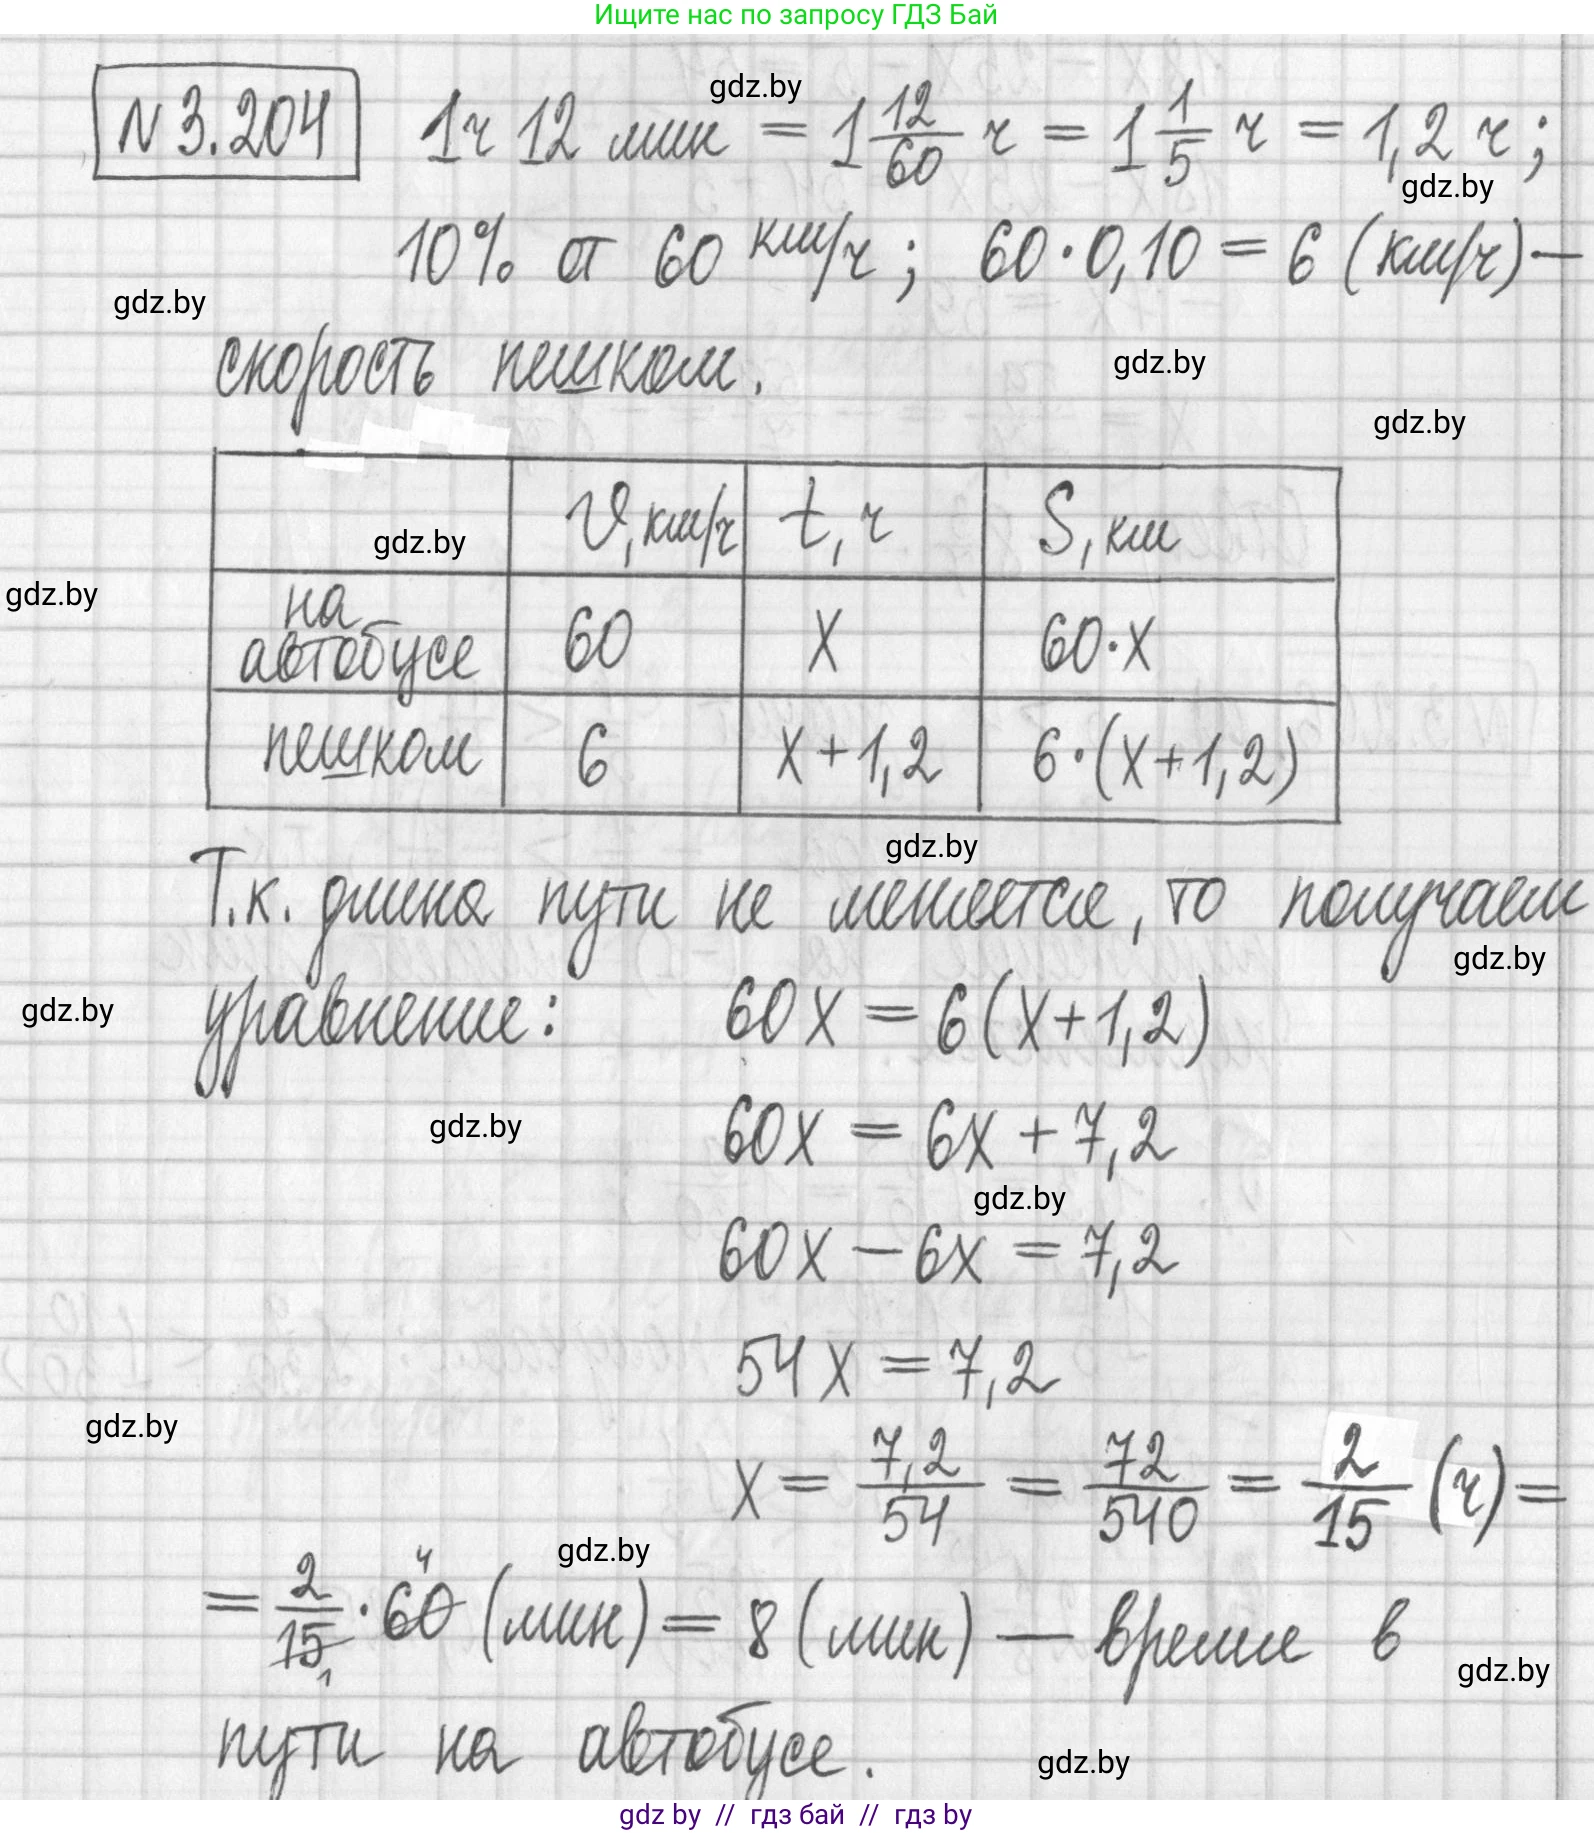 Ищите нас по запросу ГДЗ Бай
gdz.by
N 3.204 1ч 12 мин = 1 12/60 ч = 1 1/5 ч = 1,2 ч ;
gdz.by
10% от 60 км/ч ; 60·0,10 = 6 (км/ч) —
gdz.by
скорость пешком.
gdz.by
gdz.by
v, км/ч t, ч S, км
gdz.by
gdz.by
на автобусе 60 x 60·x
пешком 6 x + 1,2 6·(x+1,2)
gdz.by
Т.к. длина пути не меняется, то получаем
gdz.by
уравнение: 60x = 6(x+1,2)
gdz.by
60x = 6x + 7,2
gdz.by
gdz.by
60x – 6x = 7,2
54x = 7,2
gdz.by
x = 7,2/54 = 72/540 = 2/15 (ч) =
gdz.by
= 2/15 1 · 60 4 (мин) = 8 (мин) — время в
gdz.by
пути на автобусе.
gdz.by
gdz by // гдз бай // гдз by